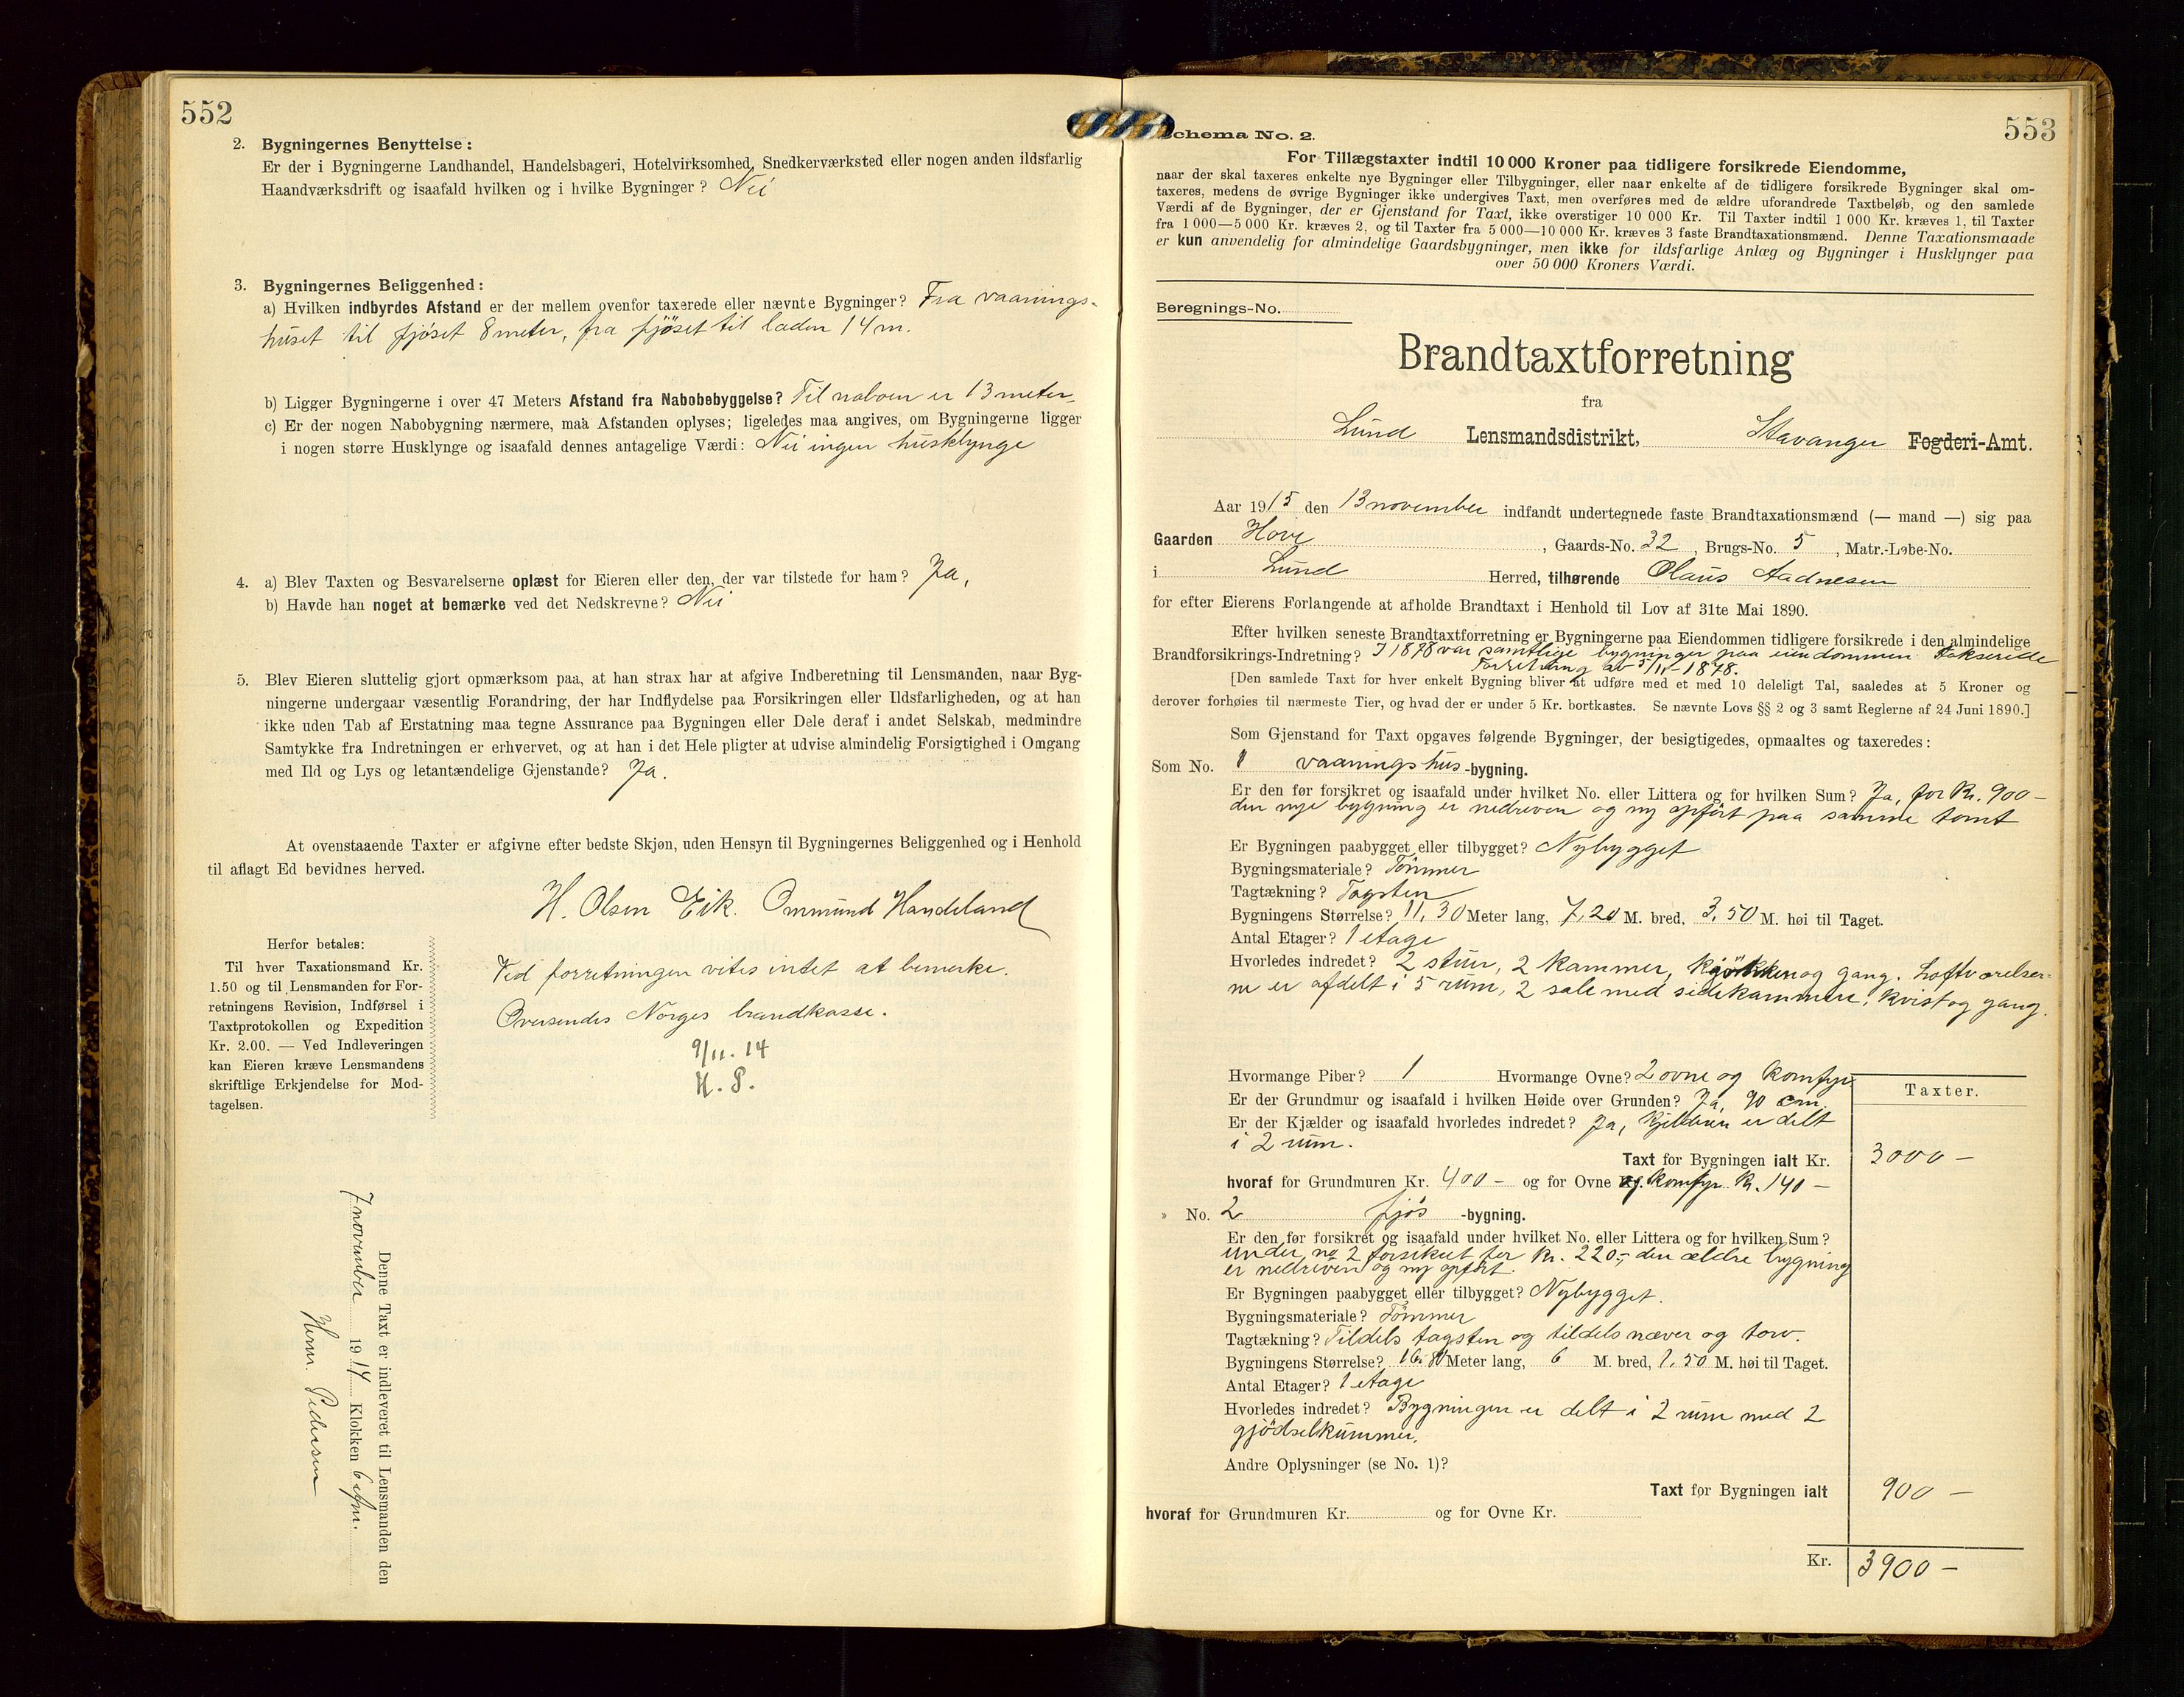 552
2. Bygningernes Benyttelse:
Er der i Bygningerne Landhandel, Handelsbageri, Hotelvirksomhed, Snedkerværksted eller nogen anden ildsfarlig
Haandværksdrift og isaafald hvilken og i hvilke Bygninger? Nei
3. Bygningernes Beliggenhed:
a) Hvilken indbyrdes Afstand er der mellem ovenfor taxerede eller nævnte Bygninger? Fra vaanings-
huset til fjöset 8 meter, fra fjöset til laden 14 m.
b) Ligger Bygningerne i over 47 Meters Afstand fra Nabobebyggelse? Til naboen er 13 meter.
c) Er der nogen Nabobygning nærmere, maa Afstanden oplyses; ligeledes maa angives, om Bygningerne ligger
i nogen større Husklynge og isaafald dennes antagelige Værdi: Nei ingen husklynge
4. a) Blev Taxten og Besvarelserne oplæst for Eieren eller den, der var tilstede for ham? Ja,
b) Havde han noget at bemærke ved det Nedskrevne? Nei
5. Blev Eieren sluttelig gjort opmærksom paa, at han strax har at afgive Indberetning til Lensmanden, naar Byg-
ningerne undergaar væsentlig Forandring, der har Indflydelse paa Forsikringen eller Ildsfarligheden, og at han
ikke uden Tab af Erstatning maa tegne Assurance paa Bygningen eller Dele deraf i andet Selskab, medmindre
Samtykke fra Indretningen er erhvervet, og at han i det Hele pligter at udvise almindelig Forsigtighed i Omgang
med Ild og Lys og letantændelige Gjenstande? Ja.
At ovenstaaende Taxter er afgivne efter bedste Skjøn, uden Hensyn til Bygningernes Beliggenhed og i Henhold
til aflagt Ed bevidnes herved.
H. Olsen Eik. Ommund Handeland
Herfor betales:
Til hver Taxationsmand Kr.
1.50 og til Lensmanden for For-
retningens Revision, Indførsel i
Taxtprotokollen og Expedition
Kr. 2.00. — Ved Indleveringen
kan Eieren kræve Lensmandens
skriftlige Erkjendelse for Mod-
tagelsen.
Ved forretningen vites intet at bemerke.
Oversendes Norges brandkasse.
9/11. 14
H. P.
Denne Taxt er indleveret til Lensmanden den
7 november 1914 Klokken 6 efm.
Herm. Pedersen
553
Schema No. 2.
For Tillægstaxter indtil 10 000 Kroner paa tidligere forsikrede Eiendomme,
naar der skal taxeres enkelte nye Bygninger eller Tilbygninger, eller naar enkelte af de tidligere forsikrede Bygninger skal om-
taxeres, medens de øvrige Bygninger ikke undergives Taxt, men overføres med de ældre uforandrede Taxtbeløb, og den samlede
Værdi af de Bygninger, der er Gjenstand for Taxt, ikke overstiger 10 000 Kr. Til Taxter indtil 1 000 Kr. kræves 1, til Taxter
fra 1 000—5 000 Kr. kræves 2, og til Taxter fra 5 000—10 000 Kr. kræves 3 faste Brandtaxationsmænd. Denne Taxationsmaade
er kun anvendelig for almindelige Gaardsbygninger, men ikke for ildsfarlige Anlæg og Bygninger i Husklynger paa
over 50 000 Kroners Værdi.
Beregnings-No.
Brandtaxtforretning
fra
Lund Lensmandsdistrikt, Stavanger Fogderi-Amt.
Aar 1915 den 13 november indfandt undertegnede faste Brandtaxationsmænd (— mand —) sig paa
Gaarden Hove, Gaards-No. 32, Brugs-No. 5, Matr.-Løbe-No.
i Lund Herred, tilhørende Olaus Aadnesen
for efter Eierens Forlangende at afholde Brandtaxt i Henhold til Lov af 31te Mai 1890.
Efter hvilken seneste Brandtaxtforretning er Bygningerne paa Eiendommen tidligere forsikrede i den almindelige
Brandforsikrings-Indretning? I 1878 var samtlige bygninger paa eiendommen takserede
Forretning av 5/11 1878.
[Den samlede Taxt for hver enkelt Bygning bliver at udføre med et med 10 deleligt Tal, saaledes at 5 Kroner og
derover forhøies til nærmeste Tier, og hvad der er under 5 Kr. bortkastes. Se nævnte Lovs §§ 2 og 3 samt Reglerne af 24 Juni 1890.]
Som Gjenstand for Taxt opgaves følgende Bygninger, der besigtigedes, opmaaltes og taxeredes:
Som No. 1 vaaningshus-bygning.
Er den før forsikret og isaafald under hvilket No. eller Littera og for hvilken Sum? Ja, for Kr. 900 –
den nye bygning er nedreven og ny opført paa samme tomt
Er Bygningen paabygget eller tilbygget? Nybygget
Bygningsmateriale? Tömmer
Tagtækning? Tagsten
Bygningens Størrelse? 11,30 Meter lang, 7,20 M. bred, 3,50 M. høi til Taget.
Antal Etager? 1 etage
Hvorledes indredet? 2 stuer, 2 kammer, kjökken og gang. Loftværelser-
ne er afdelt i 5 rum, 2 sale med sidekammere, kvist og gang.
Hvormange Piber? 1 Hvormange Ovne? 2 ovne og komfyr
Er der Grundmur og isaafald i hvilken Høide over Grunden? Ja, 90 cm.
Er der Kjælder og isaafald hvorledes indredet? Ja, kjelderen er delt
i 2 rum.
Taxter.
Taxt for Bygningen ialt Kr. 3000 –
hvoraf for Grundmuren Kr. 400 – og for Ovne og komfyr Kr. 140 –
» No. 2 fjös -bygning.
Er den før forsikret og isaafald under hvilket No. eller Littera og for hvilken Sum?
under no 2 forsikret for kr. 220,- den ældre bygning
er nedreven og ny opført.
Er Bygningen paabygget eller tilbygget? Nybygget.
Bygningsmateriale? Tömmer
Tagtækning? Tildels tagsten og tildels næver og torv.
Bygningens Størrelse? Meter lang, 6 M. bred, 1,50 M. høi til Taget.
Antal Etager? 1 etage
Hvorledes indredet? Bygningen er delt i 2 rum med 2
gjödselkummer.
Andre Oplysninger (se No. 1)?
Taxt for Bygningen ialt 900 –
hvoraf for Grundmuren Kr. og for Ovne Kr.
Kr. 3900 –